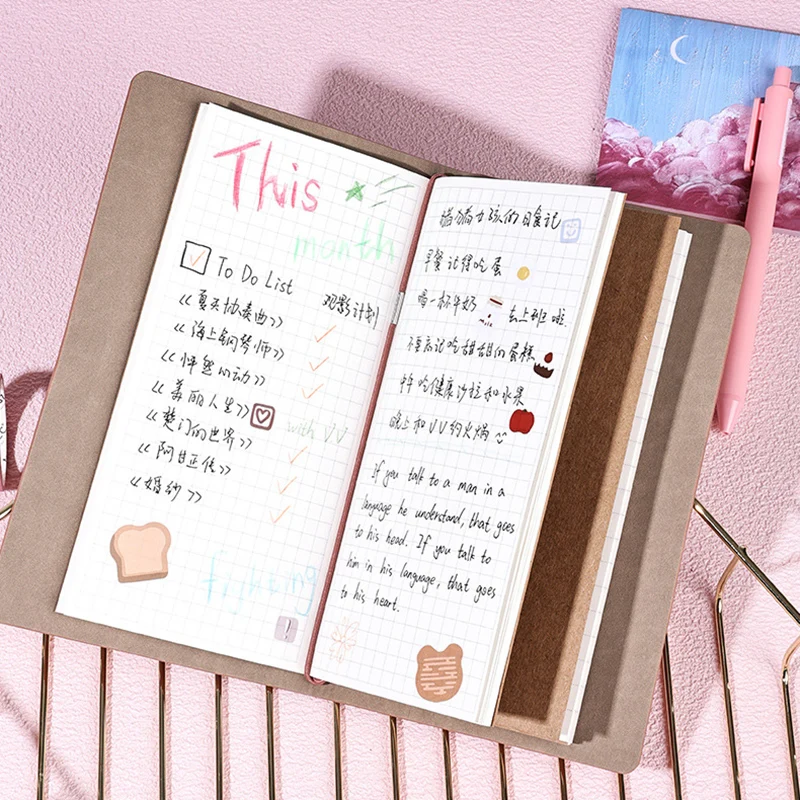 This
month
To Do List
观影计划
《夏天协奏曲》
《海上钢琴师》
《怦然心动》
《美丽人生》
with VV
《楚门的世界》
《阿甘正传》
《婚纱》
fighting
女孩的日食记
早餐记得吃蛋
喝一杯牛奶 去上班啦.
milk
不要忘记吃甜甜的蛋糕
午吃健康沙拉和水果
晚上和VV约火锅
if you talk to a man in a
language he understand, that goes
to his head. If you talk to
him in his language, that goes
to his heart.